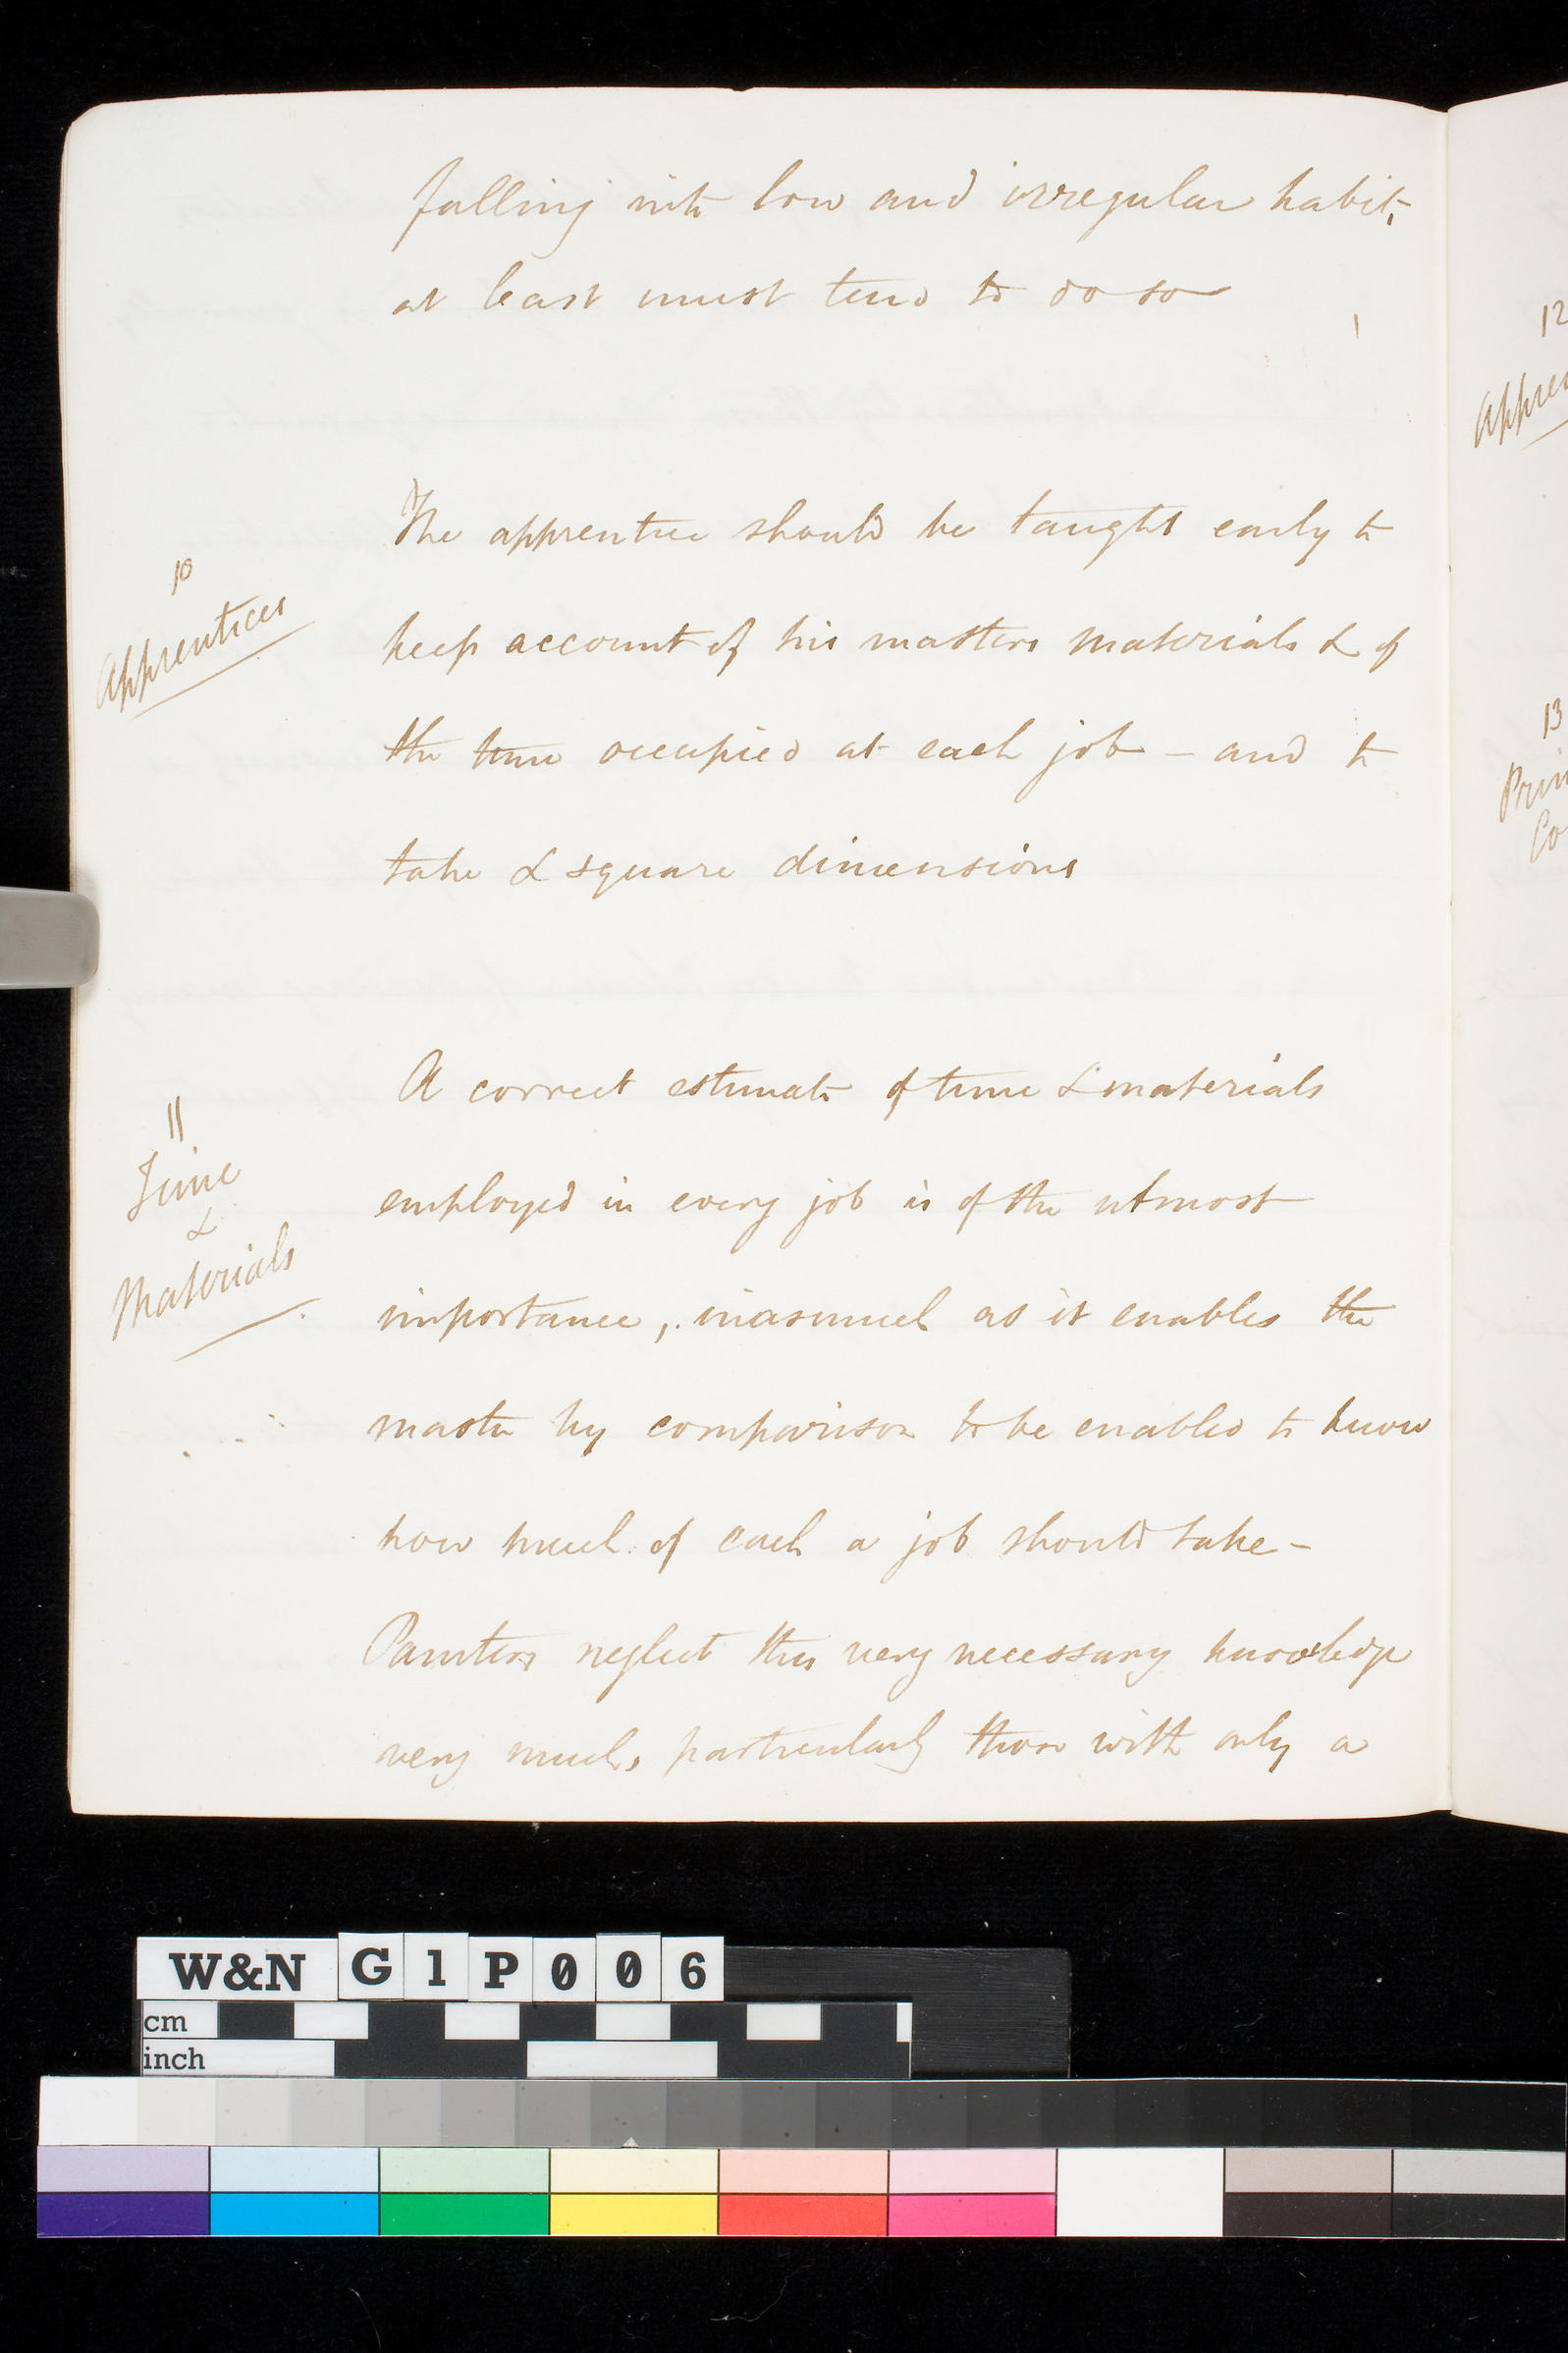 falling into low and irregular habits,
at least must tend to do so
10
Apprentices
The apprentice should be taught early to
keep account of his masters materials & of
the time occupied at each job – and to
take & square dimensions
11
Time
&
Materials
A correct estimate of time & materials
employed in every job is of the utmost
importance, inasmuch as it enables the
master by comparison to be enabled to know
how much of each a job should take –
Painters neglect this very necessary knowledge
very much, particularly those with only a
12
Appren
13
Prin
Co
W&N G1P006
cm
inch